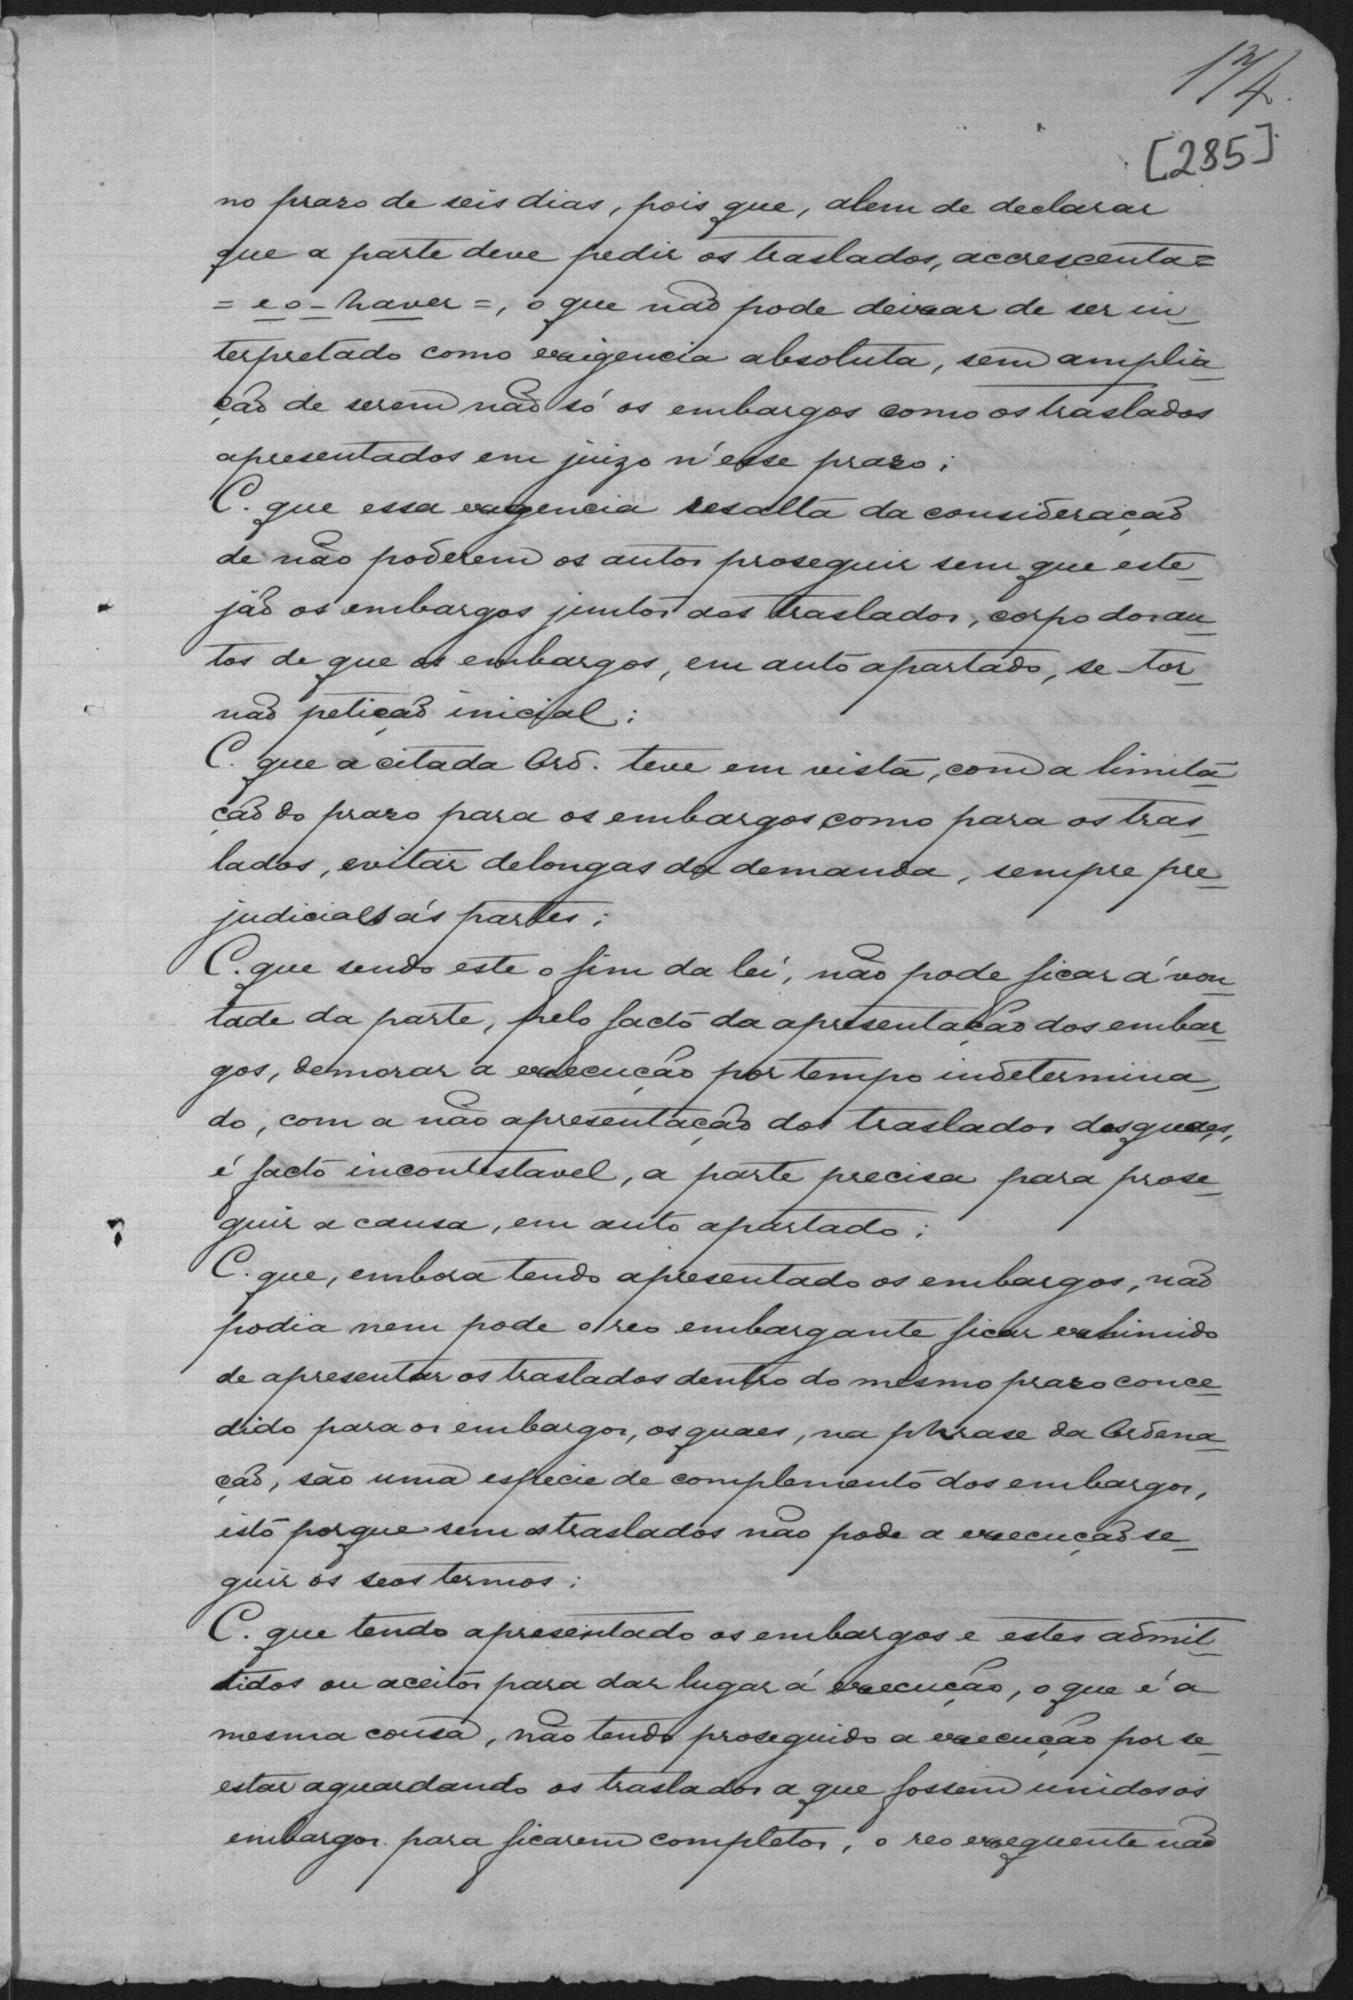 [285]
no prazo de seis dias, pois que, alem de declarar
que a parte deve pedir os traslados, accrescenta =
= e o - haver =, o que não pode deixar de ser in_
terpretado como exigencia absoluta, sem amplia_
ção de serem não só os embargos como os traslados
apresentados em juizo n'esse prazo;
C. que essa exigencia resalta da consideração
de não poderem os autos proseguir sem que este_
jão os embargos juntos aos traslados, corpo dos au_
tos de que os embargos, em auto apartado, se tor_
não petição inicial;
C. que a citada Ord. teve em vista, com a limita_
ção do prazo para os embargos como para os tras_
lados, evitar delongas da demanda, sempre pre_
judiciaes ás partes;
C. que sendo este o fim da lei, não pode ficar á von_
tade da parte, pelo facto da apresentação dos embar_
gos, demorar a execução por tempo indetermina_
do, com a não apresentação dos traslados dos quaes,
é facto incontestavel, a parte precisa para prose_
guir a causa, em auto apartado;
C. que, embora tendo apresentado os embargos, não
podia nem pode o reo embargante ficar exhimido
de apresentar os traslados dentro do mesmo prazo conce_
dido para os embargos, os quaes, na phrase da Ordena_
ção, são uma especie de complemento dos embargos,
isto porque sem os traslados não pode a execução se_
guir os seos termos;
C. que tendo apresentado os embargos e estes admit_
tidos ou aceitos para dar lugar á execução, o que é a
mesma cousa, não tendo proseguido a execução por se_
estar aguardando os traslados a que fossem unidos os
embargos para ficarem completos, o reo exequente não